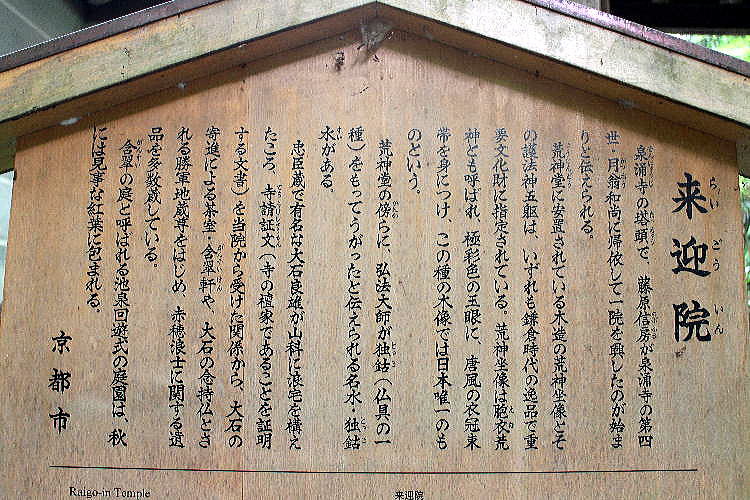 来迎院
泉涌寺の塔頭で、藤原信房が泉涌寺の第四
世・月翁和尚に帰依して一院を興したのが始ま
りと伝えられる。
荒神堂に安置されている木造の荒神坐像とそ
の護法神五躯は、いずれも鎌倉時代の逸品で重
要文化財に指定されている。荒神坐像は胞衣荒
神とも呼ばれ、極彩色の玉眼に、唐風の衣冠束
帯を身につけ、この種の木像では日本唯一のも
のという。
荒神堂の傍らに、弘法大師が独鈷(仏具の一
種)をもってうがったと伝えられる名水・独鈷
水がある。
忠臣蔵で有名な大石良雄が山科に浪宅を構え
たころ、寺請証文(寺の檀家であることを証明
する文書)を当院から受けた関係から、大石の
寄進による茶室・含翠軒や、大石の念持仏とさ
れる勝軍地蔵尊をはじめ、赤穂浪士に関する遺
品を多数蔵している。
含翠の庭と呼ばれる池泉回遊式の庭園は、秋
には見事な紅葉に包まれる。
京都市
Raigo-in Temple
来迎院